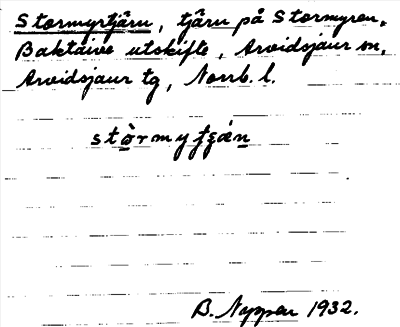 Stormyrtjärn, tjärn på Stormyren,
Baktåive utskifte, Arvidsjaur sn,
Arvidsjaur tg, Norrb. l.
B. Nyppen 1932.